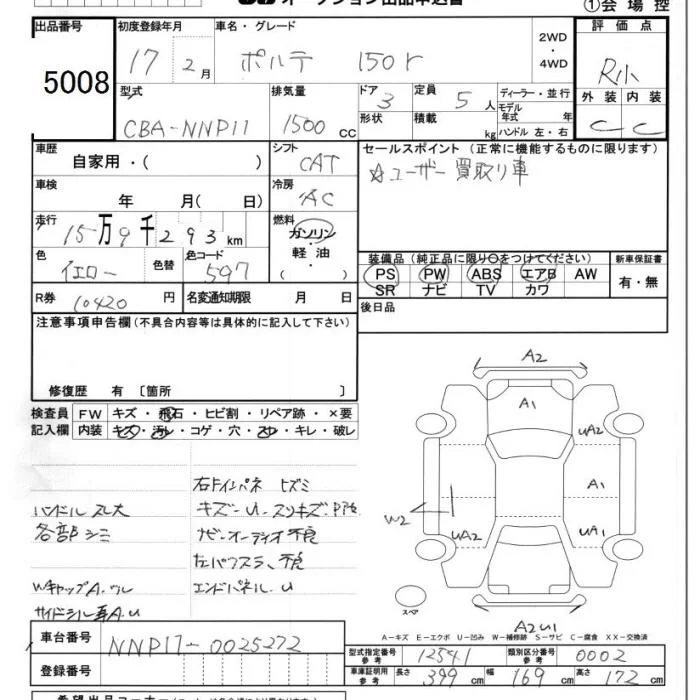 オークション出品申込書 ①会場控
出品番号 初度登録年月 車名・グレード 評価点
5008 17 2月 ポルテ 150r 2WD ・ 4WD R小
型式 排気量 ドア 定員 ディーラー・並行 外装 内装
CBA-NNP11 1500 CC 3 5人 モデル年式 年 C C
形状 積載 kg ハンドル 左・右
車歴 自家用・( ) シフト CAT セールスポイント (正常に機能するものに限ります)
車検 年 月( 日) 冷房 AC ☆ユーザー買取り車
走行 15万9千293km 燃料 ガソリン・軽油・( )
色 イエロー 色替 色コード 597 装備品(純正品に限り○をつけてください) 新車保証書
PS PW ABS エアB AW 有・無
SR ナビ TV カワ
R券 10420円 名変通知期限 月 日 後日品
注意事項申告欄(不具合内容等は具体的に記入して下さい)
修復歴 有 〔箇所 〕
検査員 FW キズ・飛石・ヒビ割・リペア跡・×要
記入欄 内装 キズ・汚レ・コゲ・穴・スレ・キレ・破レ
A2
A1
UA2
A1
W2
UA2 UA1
スペア
A2 U1
右ドインパネ ヒズミ
ハンドル スレ大 キズー U・スリキズ
各部シミ ナビーオーディオ不良
左パワスラ、不良
WキャップA.ワレ エンドパネル.U
サイドシル A.U
A-キズ E-エクボ U-凹み W-補修跡 S-サビ C-腐食 XX-交換済
車台番号 NNP11-0025272
型式指定番号 参考 12541 類別区分番号 参考 0002
登録番号 車庫証明用 参考 長さ 399cm 幅 169cm 高さ 172cm